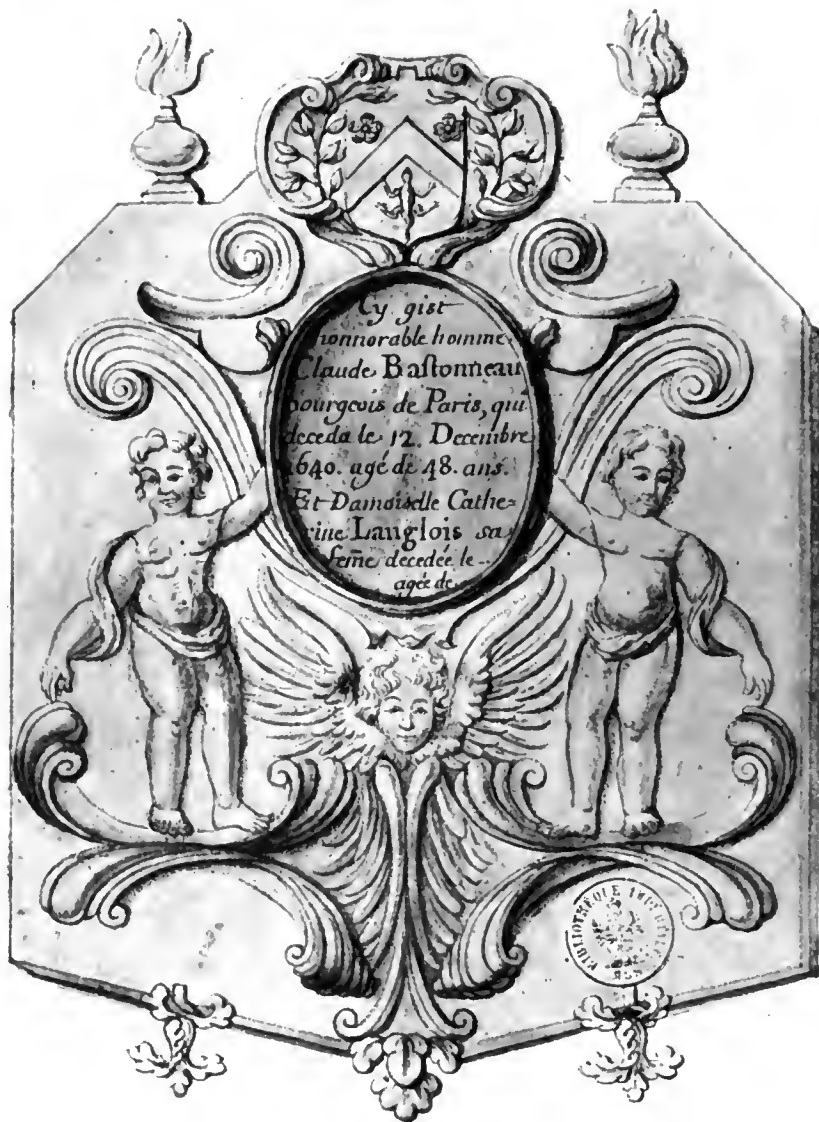 Cy gist
honnorable homme
Claude Bastonneau
bourgeois de Paris, qui
deceda le 12. Decembre
1640. agé de 48. ans.
Et Damoiselle Cathe-
rine Langlois sa
fem̃e decedée le ..
agée de
BIBLIOTHÈQUE